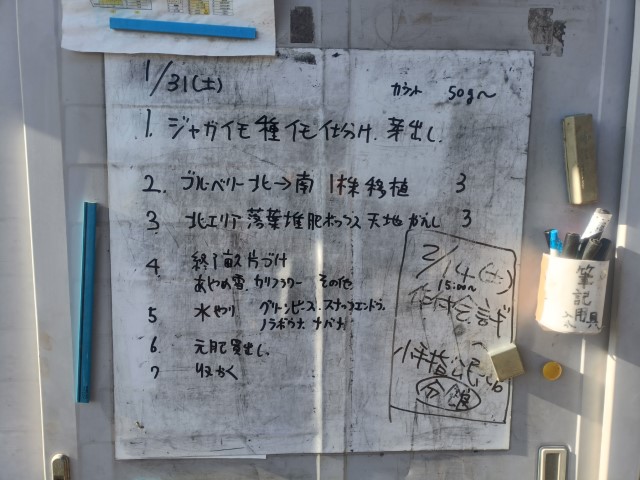 1/31(土)
カラット 50g〜
1. ジャガイモ種イモ仕分け、芽出し、
2. ブルーベリー北→南 1株移植 3
3 北エリア落葉堆肥ボックス天地がえし 3
4 終了畝片づけ
あやめ雪、カリフラワー その他
5 水やり グリーンピース、スナップエンドウ、
ノラボウナ、ナバナ
6 元肥買出し、
7 収かく
2/14(土)
15:00〜
作付会議
小手指公民館
分館
筆記
用具
入